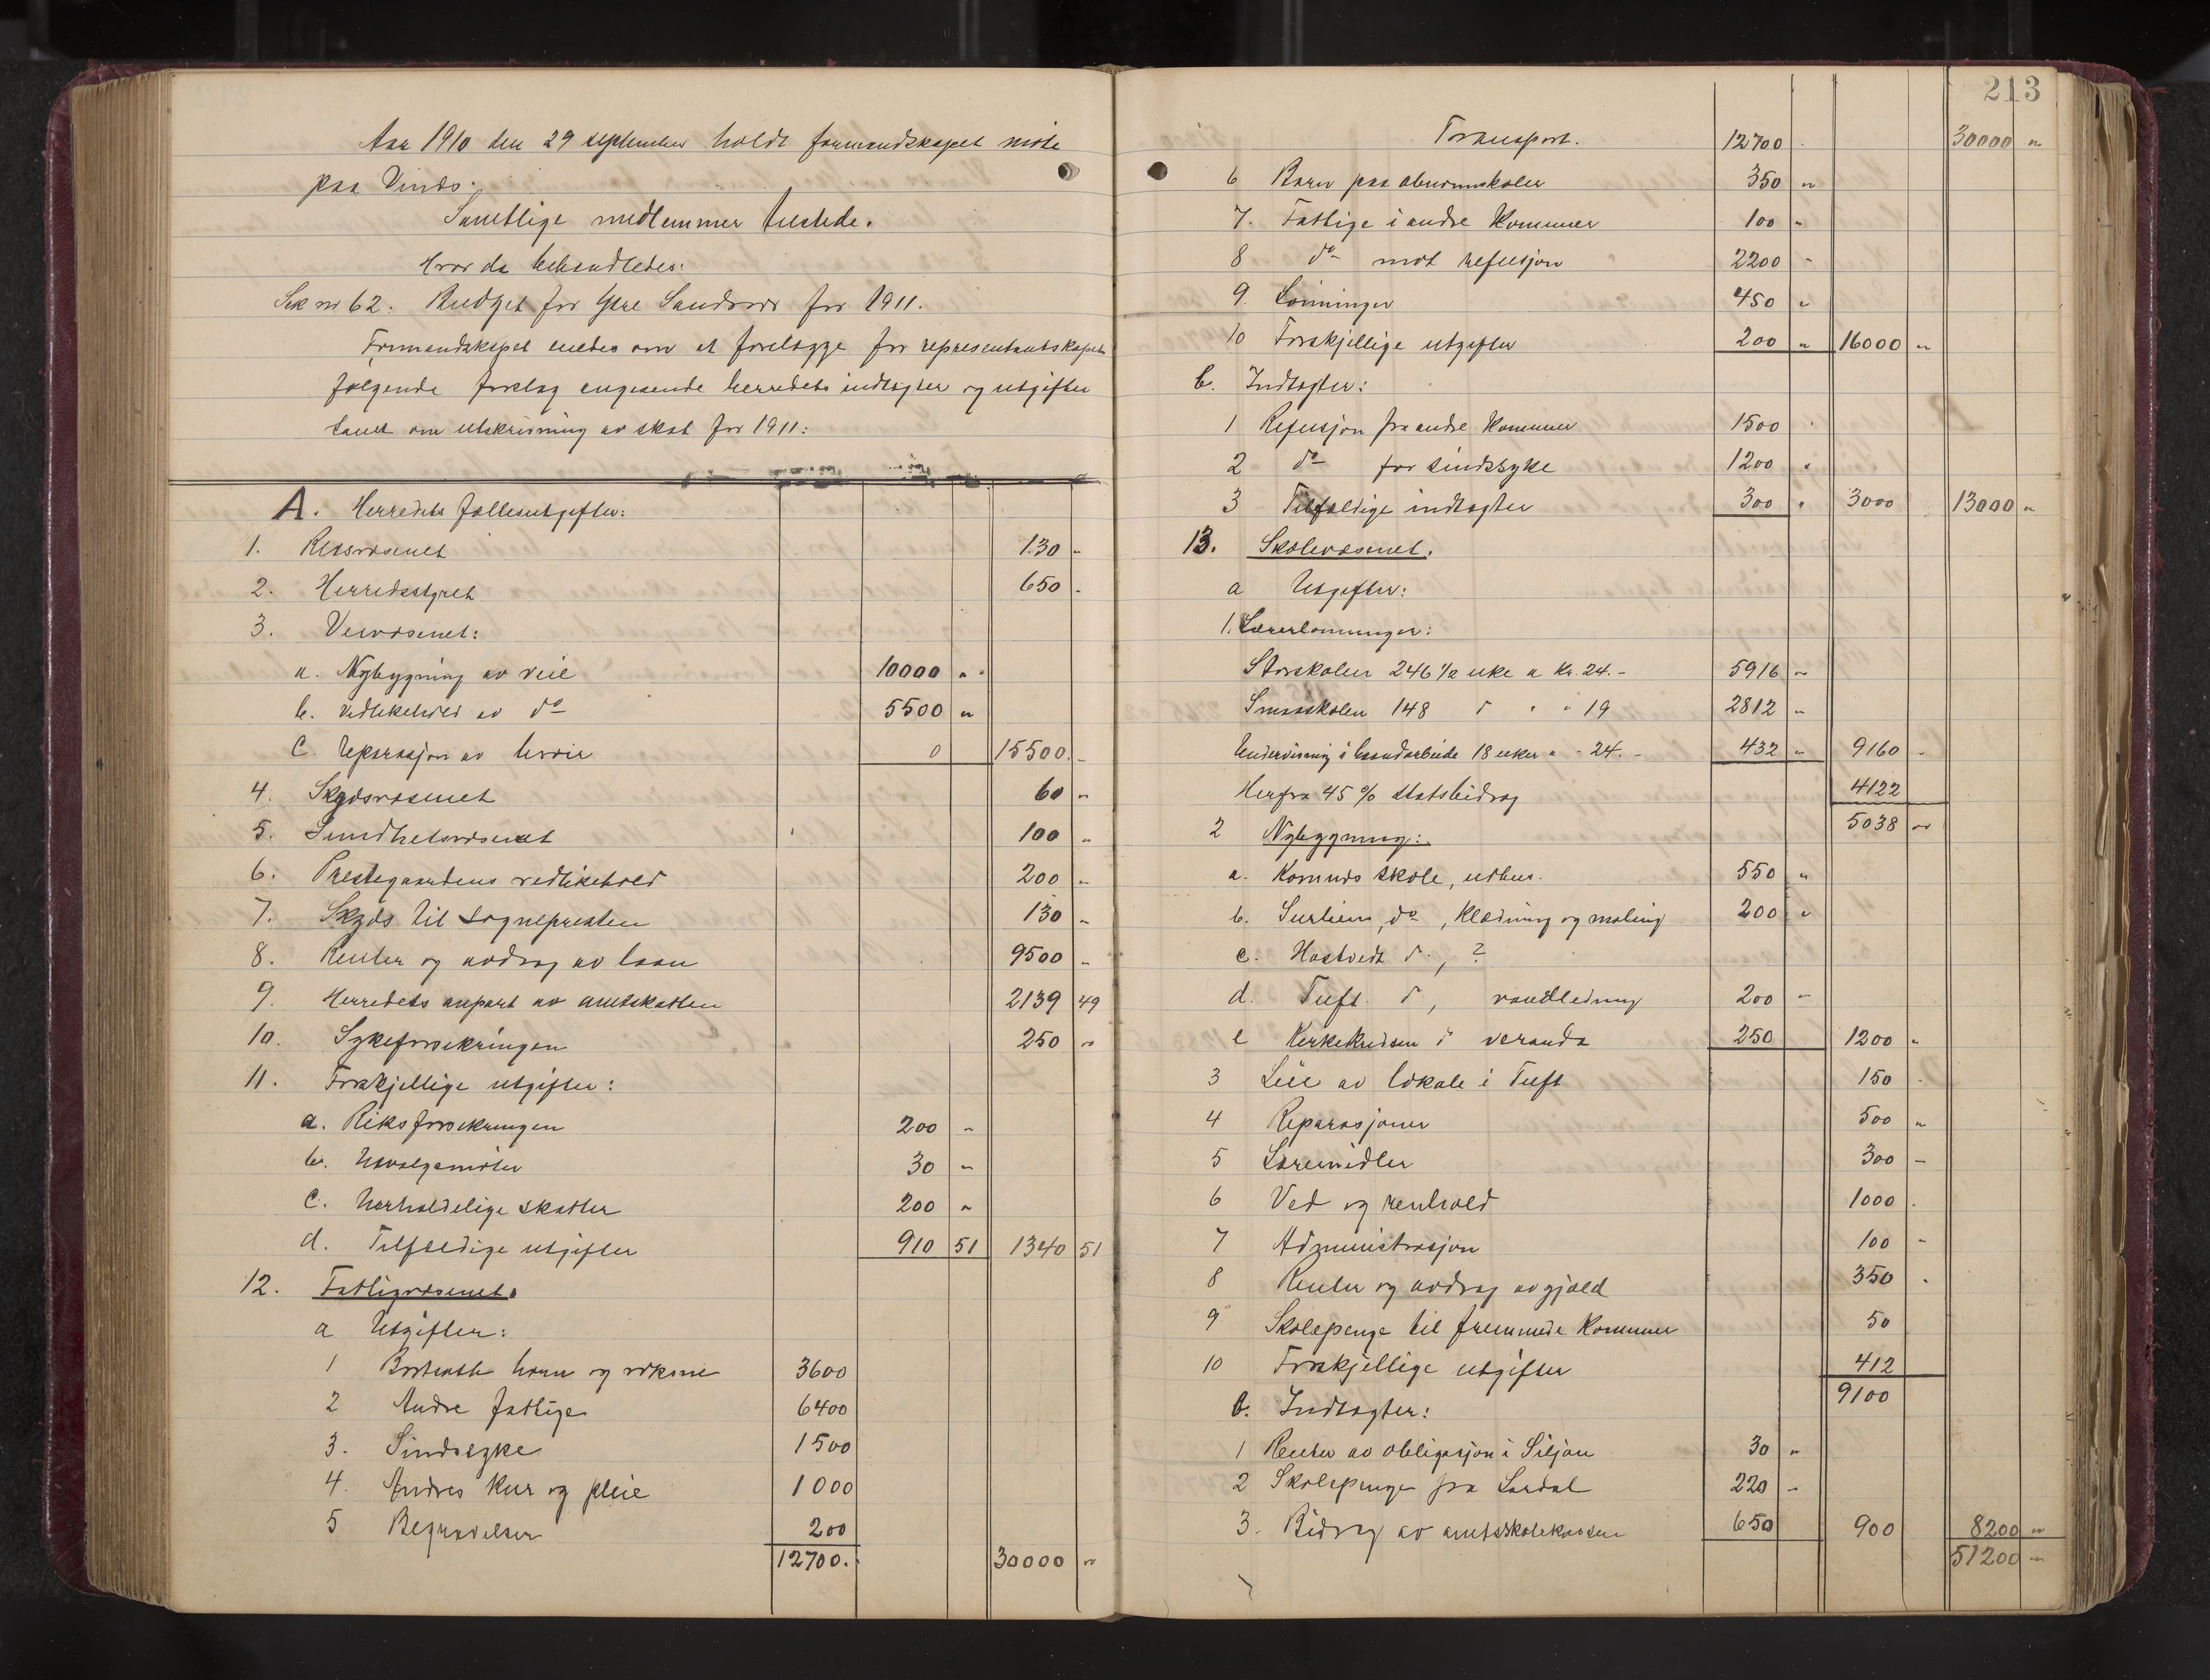 Aar 1910 den 29 september holdt formandskapet møte
paa Vinds.
Samtlige medlemmer tilstede.
Hvor da behandledes:
Sak nr 62. Budget for Ytre Sandsvær for 1911.
Formandskapet enedes om at forelægge for representantskapet
følgende forslag angaaende herredets indtægter og utgifter
samt om utskrivning av skat for 1911:
A. Herredets fællesutgifter:
1. Retsvæsenet 130 "
2. Herredsstyret 650 "
3. Veivæsenet:
a. Nybygning av veie 10000 "
b. Vedlikehold av do 5500 "
c. Reparasjon av broer 0 15500. "
4. Skydsvæsenet 60 "
5. Sundhetsvæsenet 100 "
6. Prestegaardens vedlikehold 200 "
7. Skyds til sognepresten 130 "
8. Renter og avdrag av laan 9500 "
9. Herredets anpart av amtskatten 2139 49
10. Sykeforsikringen 250 "
11. Forskjellige utgifter:
a. Riksforsikringen 200 "
b. Utvalgsmøter 30 "
c. Uerholdelige skatter 200 "
d. Tilfældige utgifter 910 51 1340 51
12. Fattigvæsenet.
a Utgifter:
1 Bortsatte barn og voksne 3600
2 Andre fattige 6400
3. Sindssyke 1500
4. Andres kur og pleie 1000
5 Begravelser 200
12700. 30000 "
213
Transport. 12700 30000 "
6 Barn paa abnormskoler 350 "
7. Fattige i andre kommuner 100 "
8 do mot refusjon 2200 "
9. Lønninger 450 "
10 Forskjellige utgifter 200 " 16000 "
b. Indtægter:
1 Refusjon fra andre kommuner 1500 "
2 do for sindssyke 1200 "
3 Tilfældige indtægter 300 " 3000 13000 "
13. Skolevæsenet.
a Utgifter:
1. Lærerlønninger:
Storskolen 246 1/2 uke a kr. 24. - 5916 "
Smaaskolen 148 d " " 19 2812 "
Undervisning i haandarbeide 18 uker a - 24. - 432 " 9160 "
Herfra 45 % statsbidrag 4122
5038 "
2 Nybygning:
a. Komnæs skole, uthus. 550 "
b. Surlien, do, klædning og maling 200 "
c. Hostvedt d., ?
d. Tuft d, vandledning 200 "
e Kirkekredsen d veranda 250 1200 "
3 Leie av lokale i Tuft 150 "
4 Reparasjoner 500 "
5 Læremidler 300 "
6 Ved og renhold 1000 "
7 Administrasjon 100 "
8 Renter og avdrag av gjæld 350 "
9 Skolepenge til fremmede kommuner 50
10 Forskjellige utgifter 412
9100
b. Indtægter:
1 Renter av obligasjon i Siljan 30 "
2 Skolepenge fra Lardal 220 "
3. Bidrag av amtsskolekassen 650 900 8200 "
51200 "